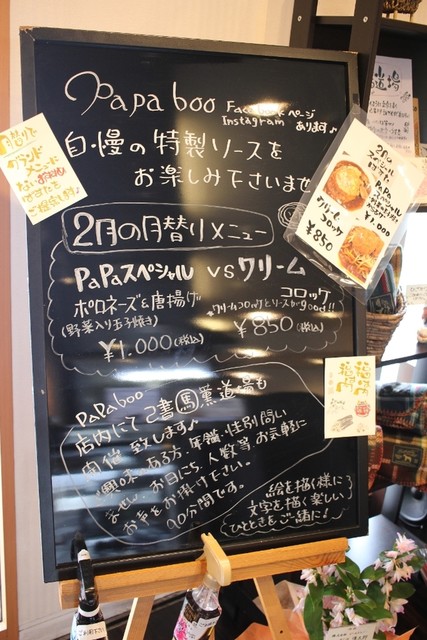 Papa boo Facebookページ
Instagram あります♪
自慢の特製ソースを
お楽しみ下さいませ
2月の月替りメニュー
PaPaスペシャル vs クリーム
コロッケ
ポロネーズ&唐揚げ
(野菜入り玉子焼き)
★クリームコロッケとソースがgood!!
¥1.000(税込)
¥850(税込)
PaPa boo
店内にて 己書 馬 薫道場も
開催 致します♪
興味 ある方、年齢・性別問い
ません。お日にち、人数等 お気軽に
お声をお掛け下さい。
90分間です。
絵を描く様に
文字を描く楽しい
ひとときをご一緒に!
月替りで
グランド
メニューに
ない
ご用意
2月の
スペシャル
PaPa
スペシャル
¥1,000
クリーム
コロッケ
¥850
道場